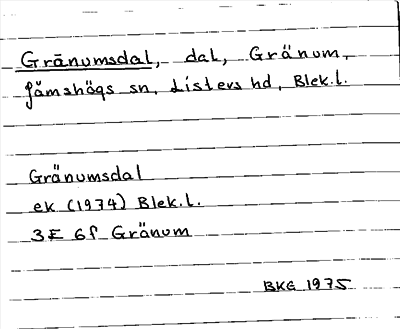 Gränumsdal, dal, Gränum,
Jämshögs sn, Listers hd, Blek.l.
Gränumsdal
ek (1974) Blek.l.
3E 6f Gränum
BKG 1975